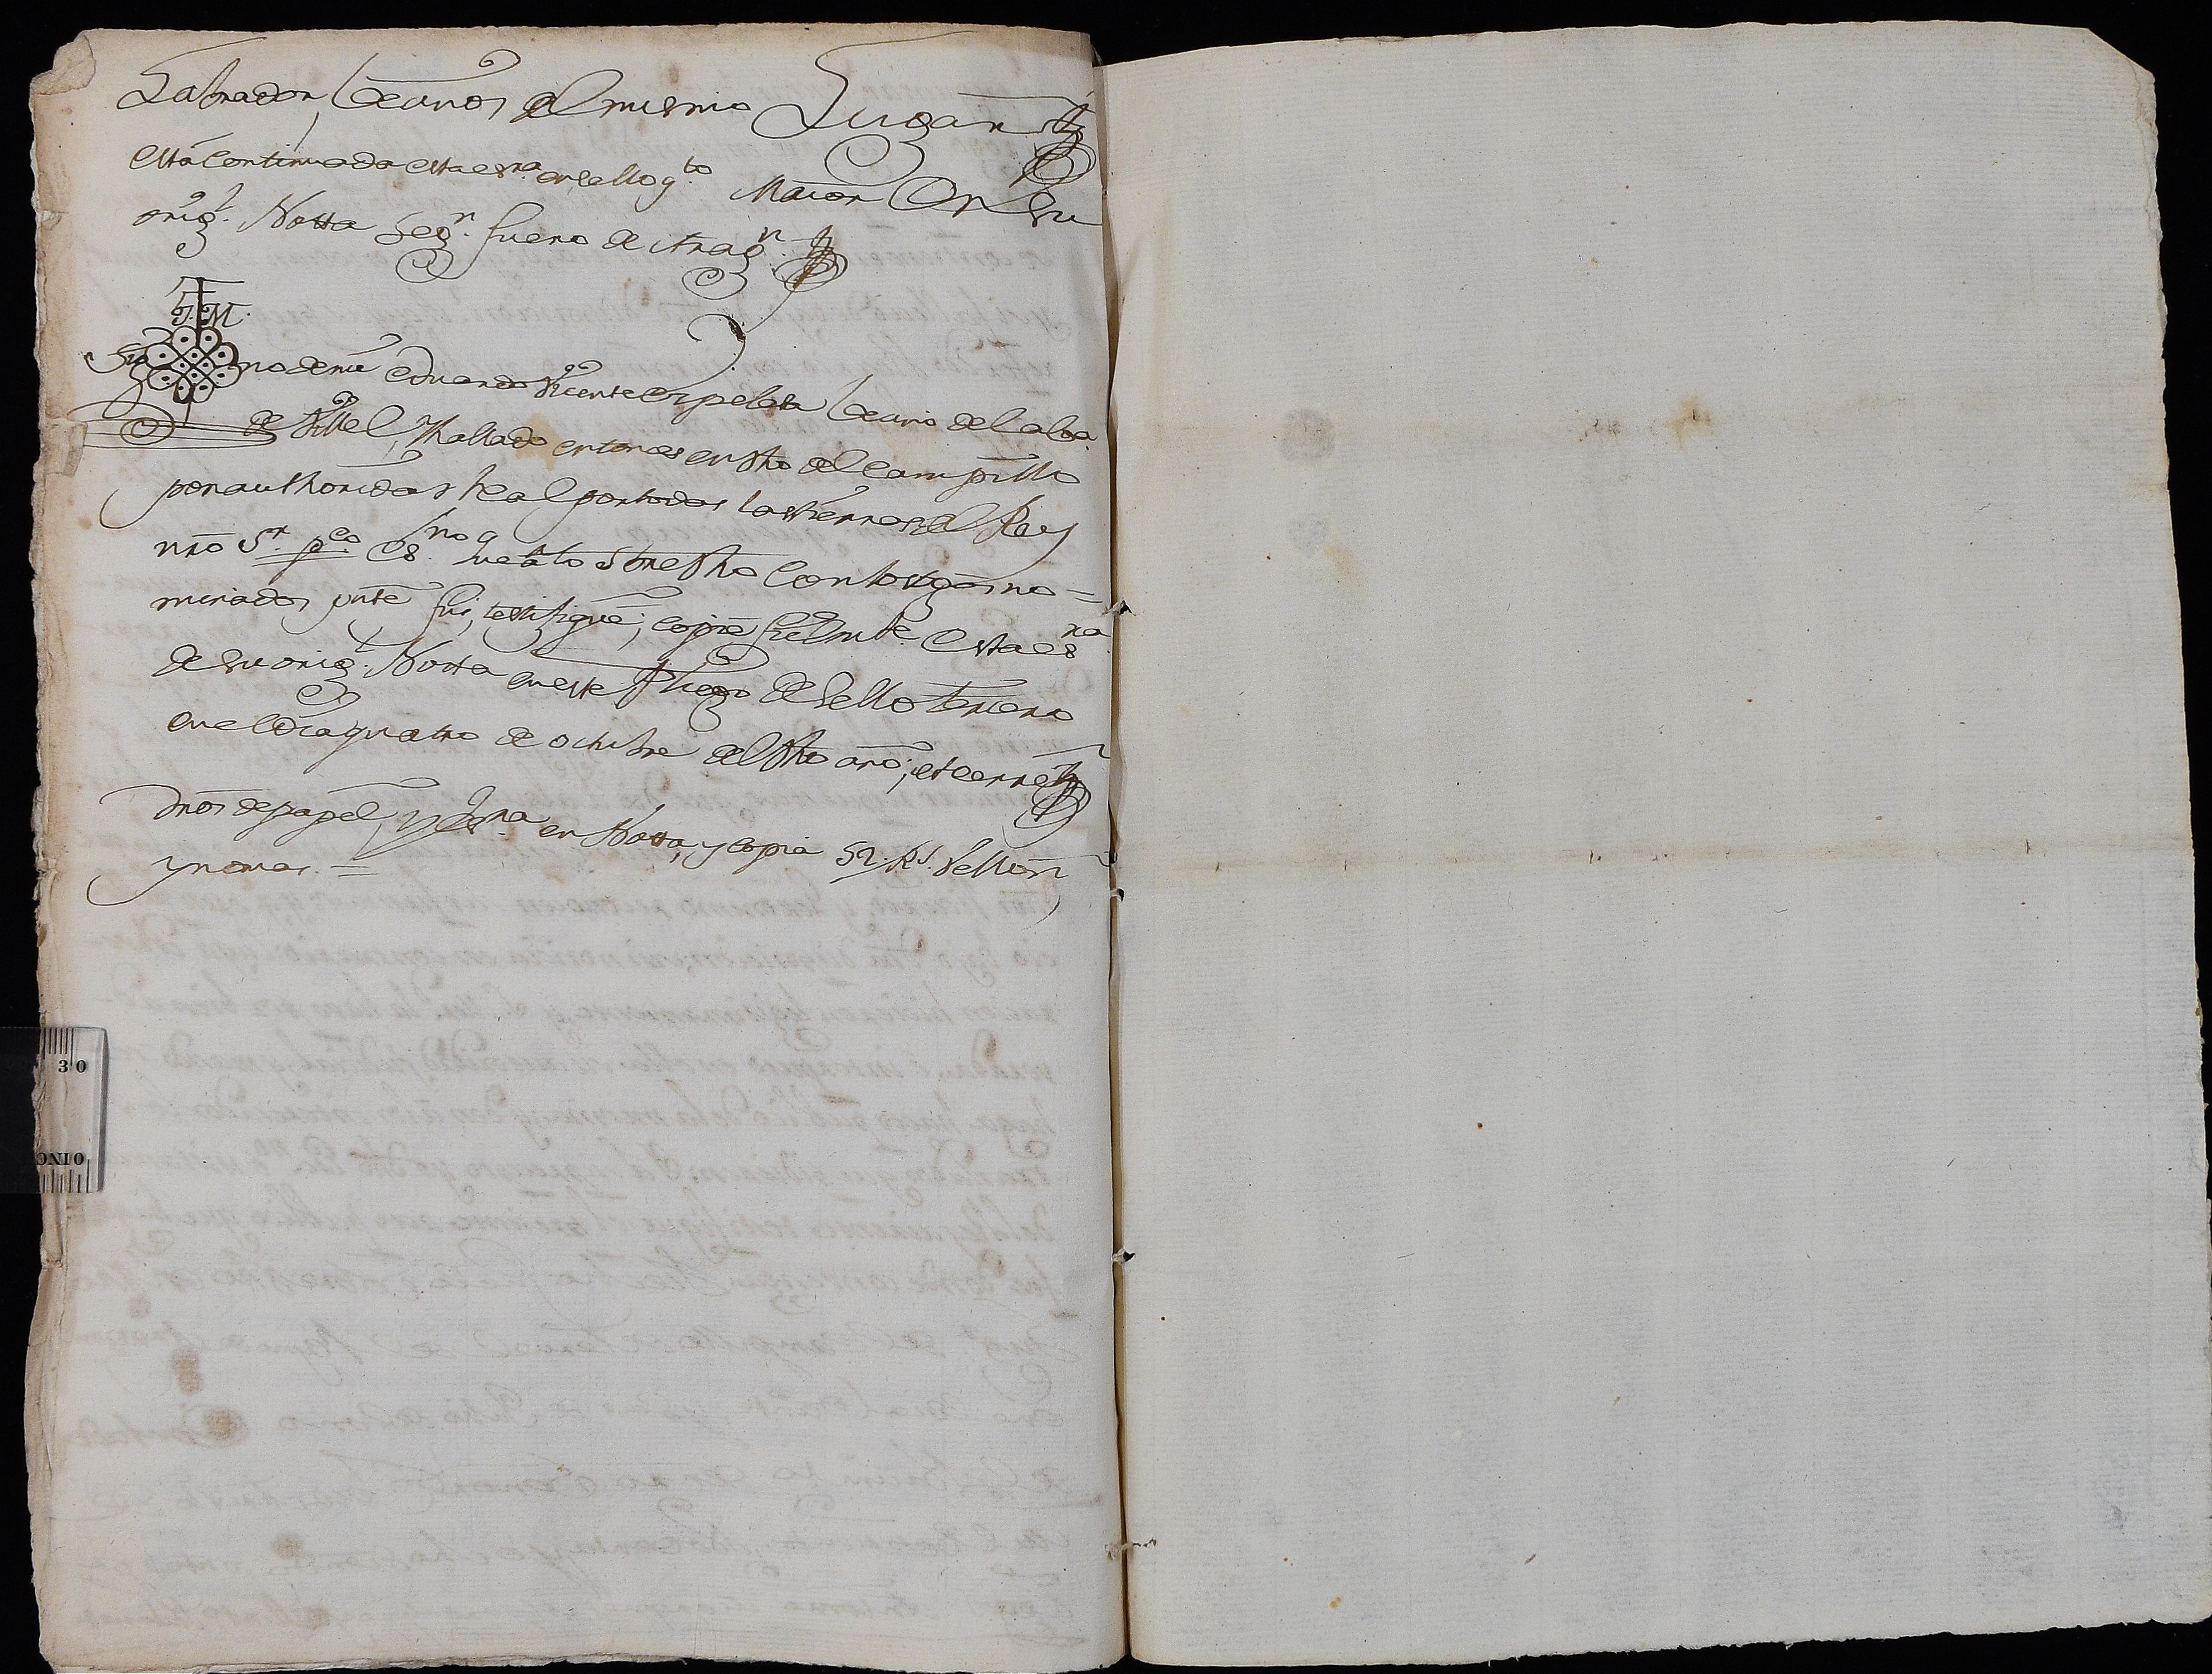 Labrador, Vecinos del mismo Lugar
está continuada esta esra. en sello qto. Maior En su
origl. Notta Segn. fuero de Aragn.
J. M.
Sig no de mi Eduardo Vicente Espelata Vecino del a Va.
de Villel, Hallado entonces en dho del Campillo
por authoridad Real por todas las tierras del Rey
nro Sr. pco. Esno. q a lo Sbre dho con los tgos no=
minados pnte fui, testifiqué, copié fielmte. esta esra.
de su origl. Notta en este Pliego de Sello tercero
en el dia quatro de octubre del dho año, et cerré
dros de papel, y Esra. en Notta, y copia 52 Rs. Vellon
y no mas. =
30